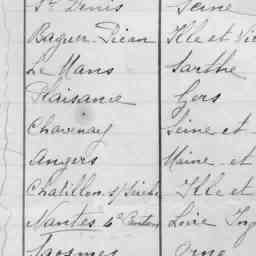 St Denis Seine
Baguer-Pican Ille et Vi
Le Mans Sarthe
Plaisance Gers
Chavenay Seine et
Angers Maine et
Chatillon s/ Ille et
Nantes 6e Canton Loire Inf
Orne